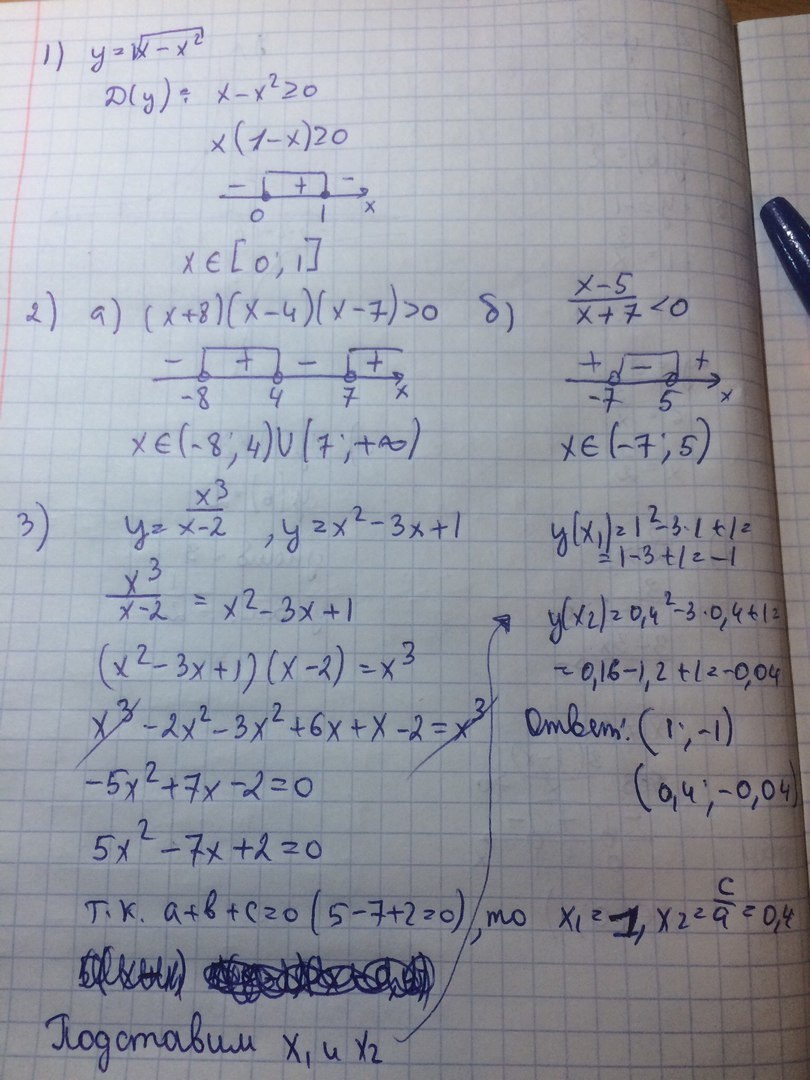 1) y = √x − x²
D(y): x − x² ≥ 0
x(1−x) ≥ 0
− + −
0 1 x
x ∈ [0; 1]
2) а) (x+8)(x−4)(x−7) > 0
− + − +
−8 4 7 x
x ∈ (−8; 4) ∪ (7; +∞)
б) x−5 / x+7 < 0
+ − +
−7 5 x
x ∈ (−7; 5)
3) y = x³ / x−2 , y = x² − 3x + 1
x³ / x−2 = x² − 3x + 1
(x² − 3x + 1)(x − 2) = x³
x³ − 2x² − 3x² + 6x + x − 2 = x³
−5x² + 7x − 2 = 0
5x² − 7x + 2 = 0
т.к. a+b+c=0 (5−7+2=0), то x₁ = 1, x₂ = c/a = 0,4
Подставим x₁ и x₂
y(x₁) = 1² − 3·1 + 1 =
= 1 − 3 + 1 = −1
y(x₂) = 0,4² − 3·0,4 + 1 =
= 0,16 − 1,2 + 1 = −0,04
Ответ: (1; −1)
(0,4; −0,04)